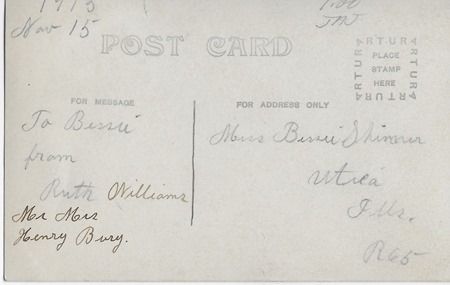 1915
Nov 15
1.00
POST CARD
ARTURA
ARTURA
PLACE
STAMP
HERE
ARTURA
ARTURA
FOR MESSAGE
FOR ADDRESS ONLY
To Bessie
from
Ruth Williams
Mr Mrs
Henry Bury.
Miss Bessie Skinner
Utica
Ills.
R65